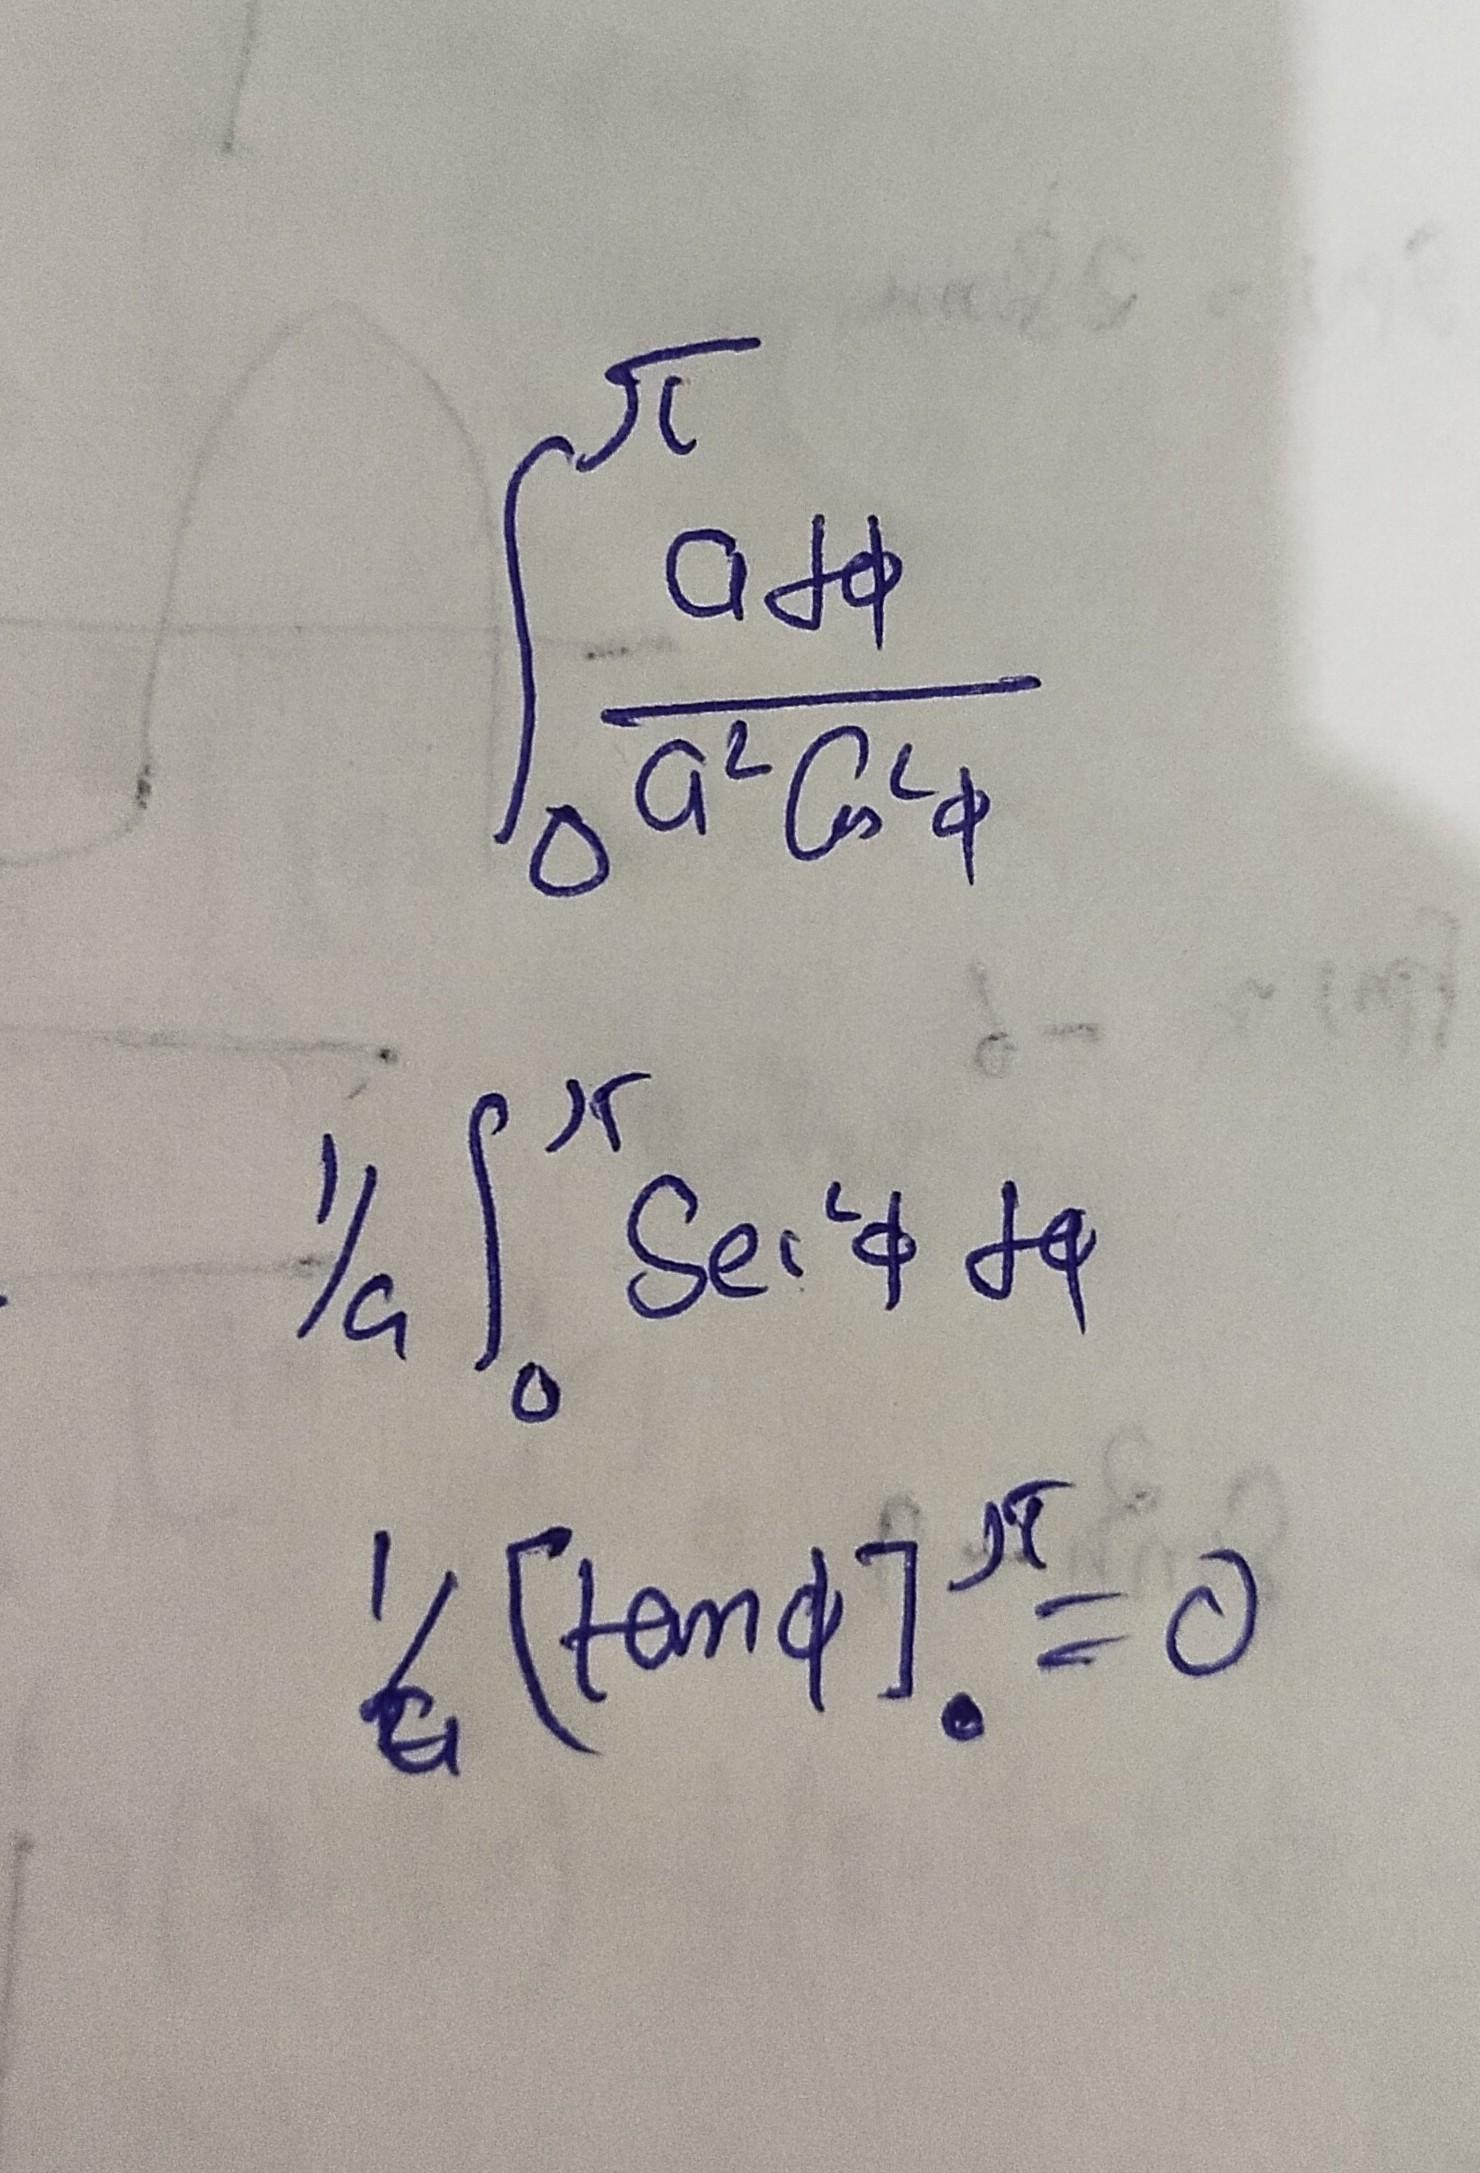 ∫₀^π a dϕ / a² Cos²ϕ
1/a ∫₀^π Sec²ϕ dϕ
1/a [tanϕ]₀^π = 0